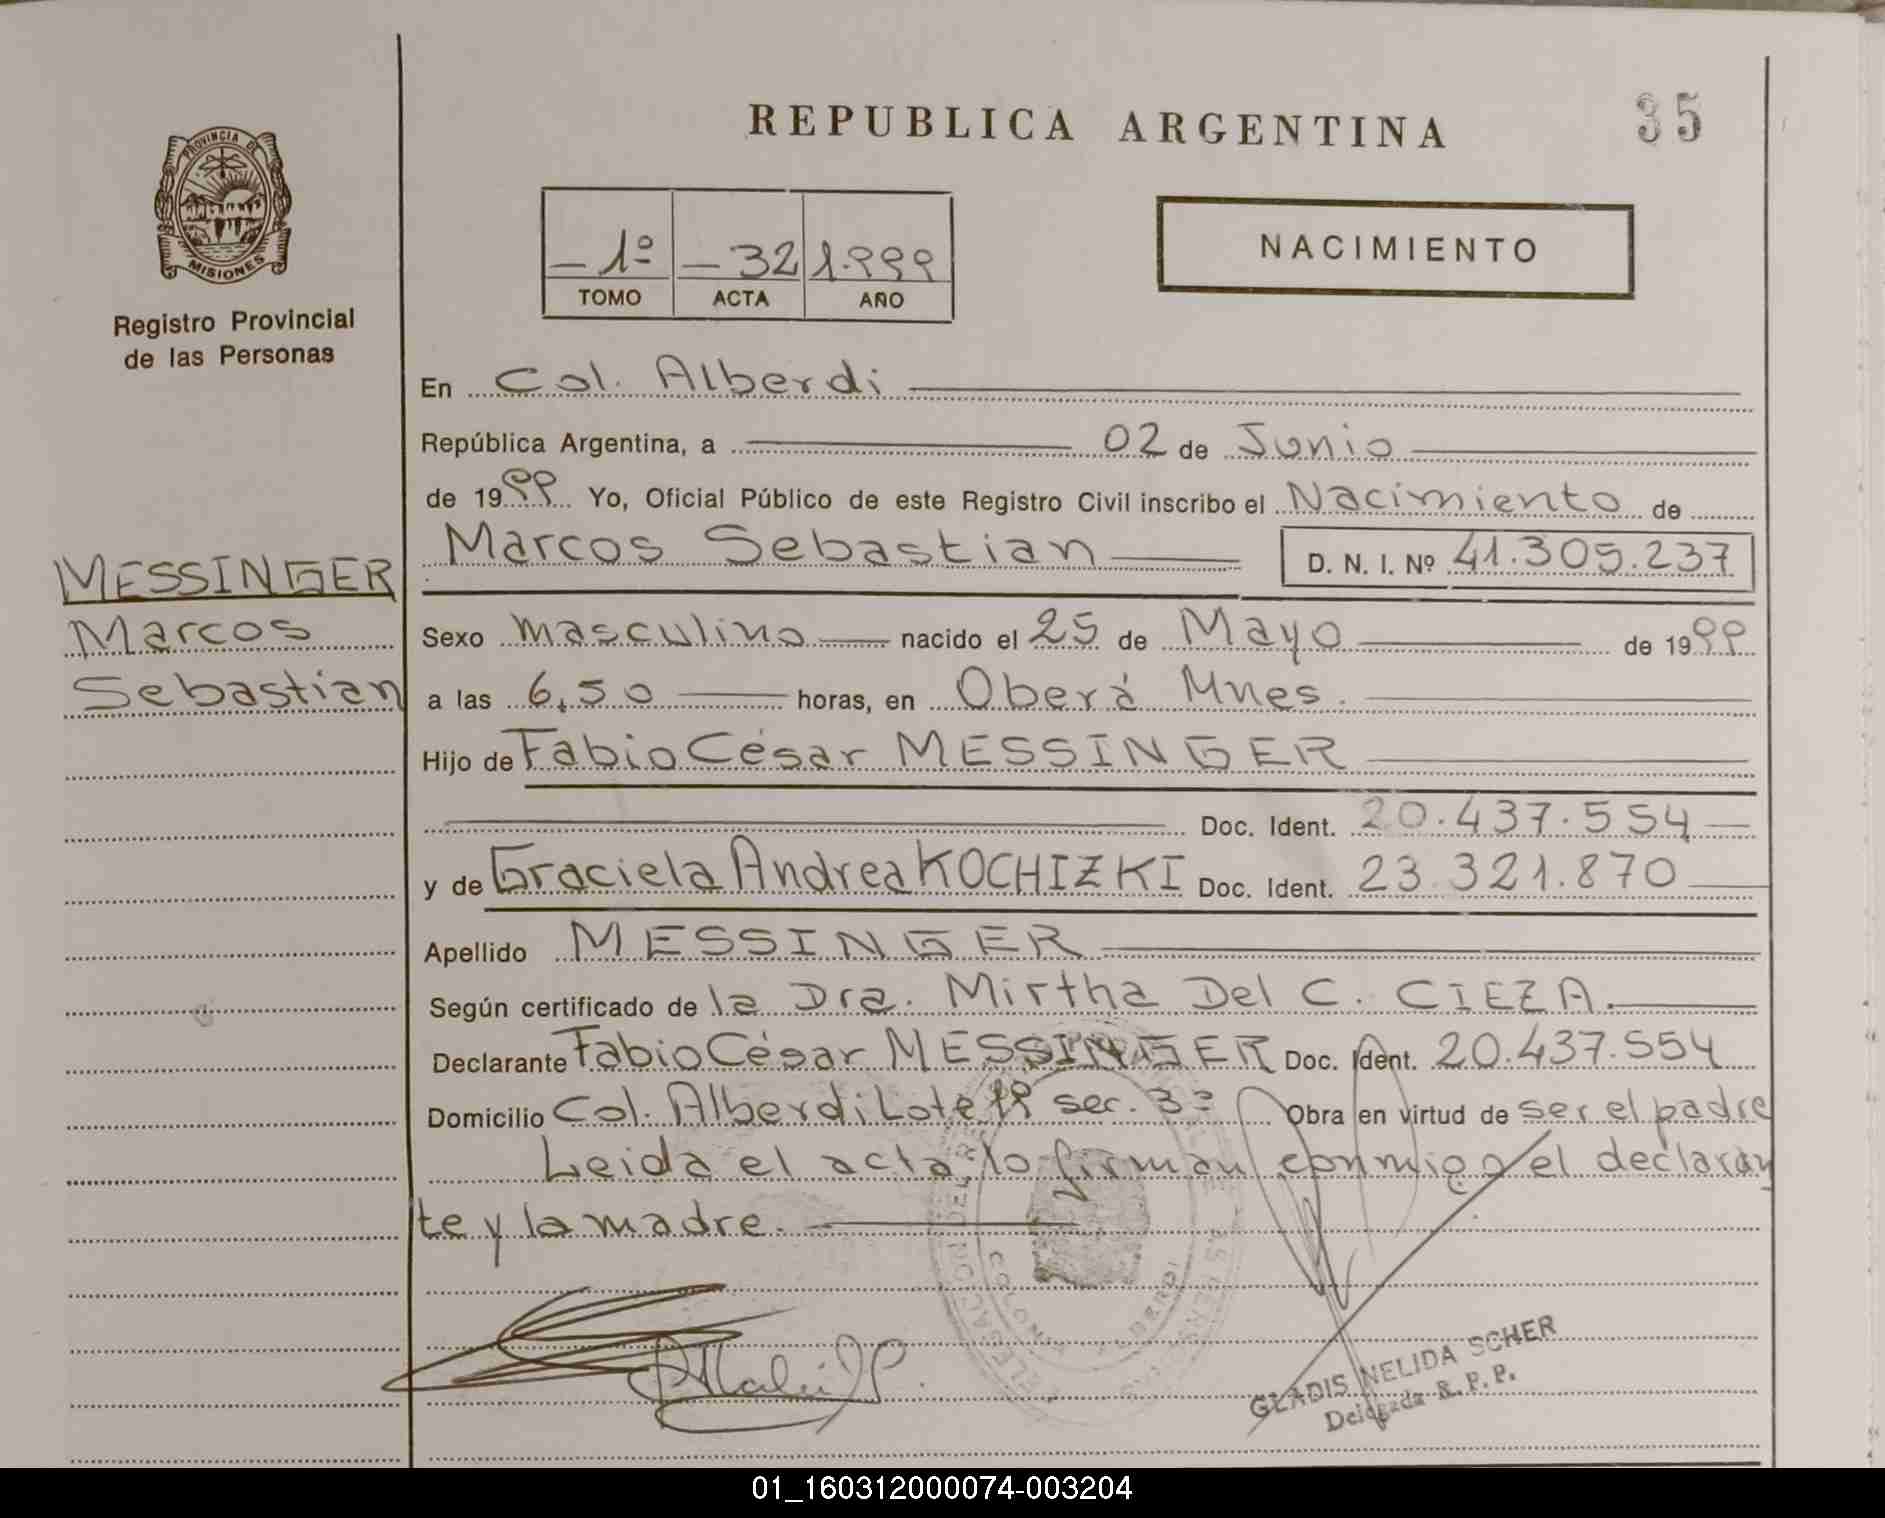 REPUBLICA ARGENTINA
35
PROVINCIA DE
MISIONES
Registro Provincial
de las Personas
-1º -32 1.999
TOMO ACTA AÑO
NACIMIENTO
En Col. Alberdi
República Argentina, a 02 de Junio
de 1999 Yo, Oficial Público de este Registro Civil inscribo el Nacimiento de
Marcos Sebastian D. N. I. Nº 41.305.237
MESSINGER
Marcos
Sebastian
Sexo masculino nacido el 25 de Mayo de 1999
a las 6,50 horas, en Oberá Mnes.
Hijo de Fabio César MESSINGER
Doc. Ident. 20.437.554
y de Graciela Andrea KOCHIZKI Doc. Ident. 23.321.870
Apellido MESSINGER
Según certificado de la Dra. Mirtha Del C. CIEZA.
Declarante Fabio César MESSINGER Doc. Ident. 20.437.554
Domicilio Col. Alberdi Lote sec. 3ª Obra en virtud de ser el padre
Leida el acta lo firman conmigo el declaran
te y la madre.
COLONIA ALBERDI
GLADIS NELIDA SCHER
Delegada R. P. P.
01_160312000074-003204